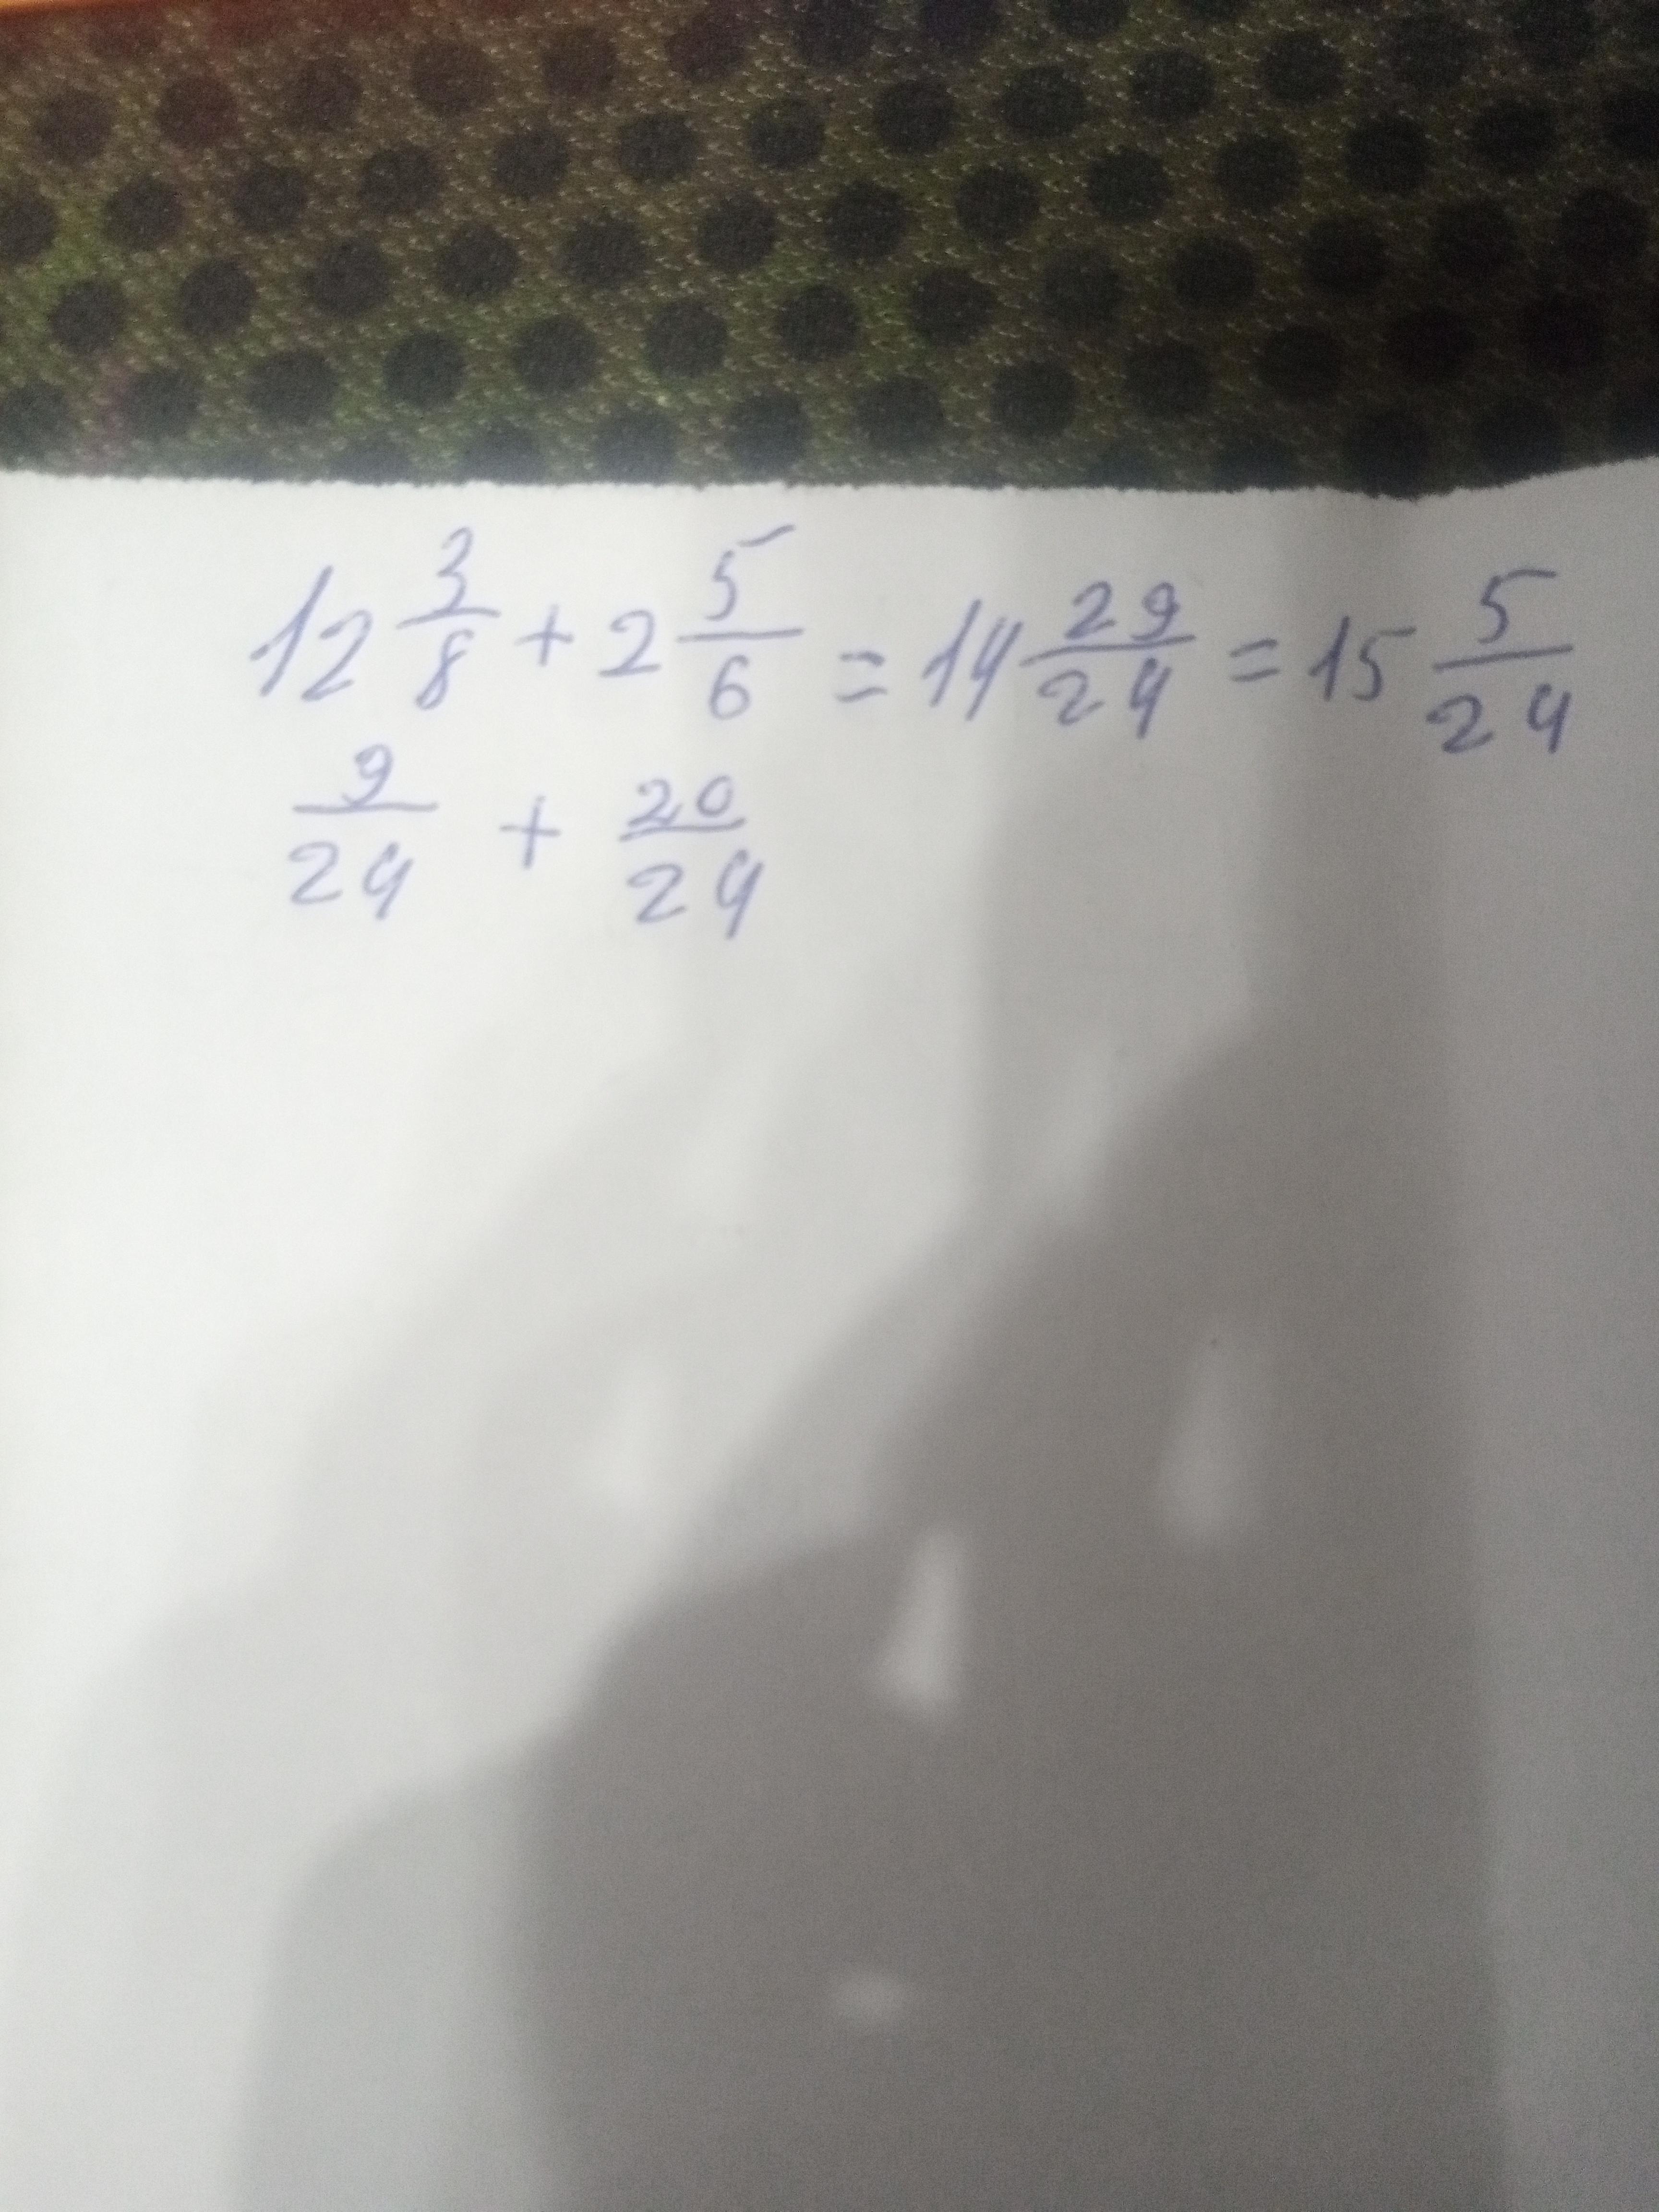 12 3/8 + 2 5/6 = 14 29/24 = 15 5/24
9/24 + 20/24